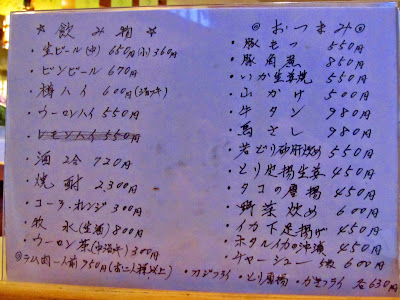 ☆ 飲み物 ☆
・生ビール(中) 650円 (小)360円
・ビンビール 670円
・樽ハイ 600円
・ウーロンハイ 550円
・レモンハイ 550円
・酒 2合 720円
・焼酎 2,300円
・コーラ・オレンジ 300円
・氷 800円
・ウーロン茶 300円
◎ おつまみ ◎
・豚もつ 550円
・豚角煮 850円
・いか生姜焼 550円
・山かけ 500円
・牛タン 980円
・馬さし 980円
・若どり砂肝炒め 550円
・とり足揚生姜 450円
・タコの唐揚 450円
・野菜炒め 600円
・イカ下足揚げ 450円
・ホタルイカの沖漬 450円
・チャーシュー 600円
◎ラム肉一人前 950円
・カジフライ ・とり唐揚 ・かきフライ 各630円